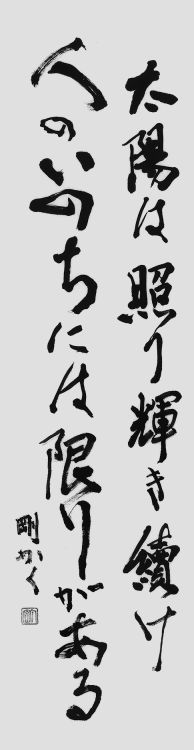 太陽は照り輝き續け
人のいのちには限りがある
剛かく